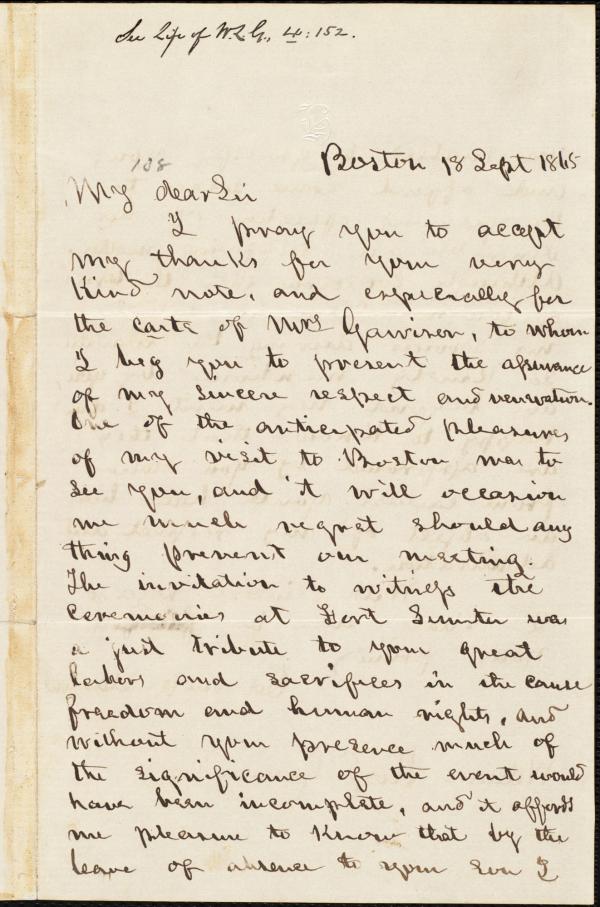 See Life of W.L.G., 4:152.
B
138
Boston 18 Sept 1865
My dear Sir
I pray you to accept
my thanks for your very
kind note, and especially for
the carte of Mrs Garrison, to whom
I beg you to present the assurance
of my sincere respect and veneration.
One of the anticipated pleasures
of my visit to Boston was to
see you, and it will occasion
me much regret should any
thing prevent our meeting.
The invitation to witness the
ceremonies at Fort Sumter was
a just tribute to your great
labors and sacrifices in the cause
freedom and human rights, and
without your presence much of
the significance of the event would
have been incomplete, and it affords
me pleasure to know that by the
leave of absence to your son I